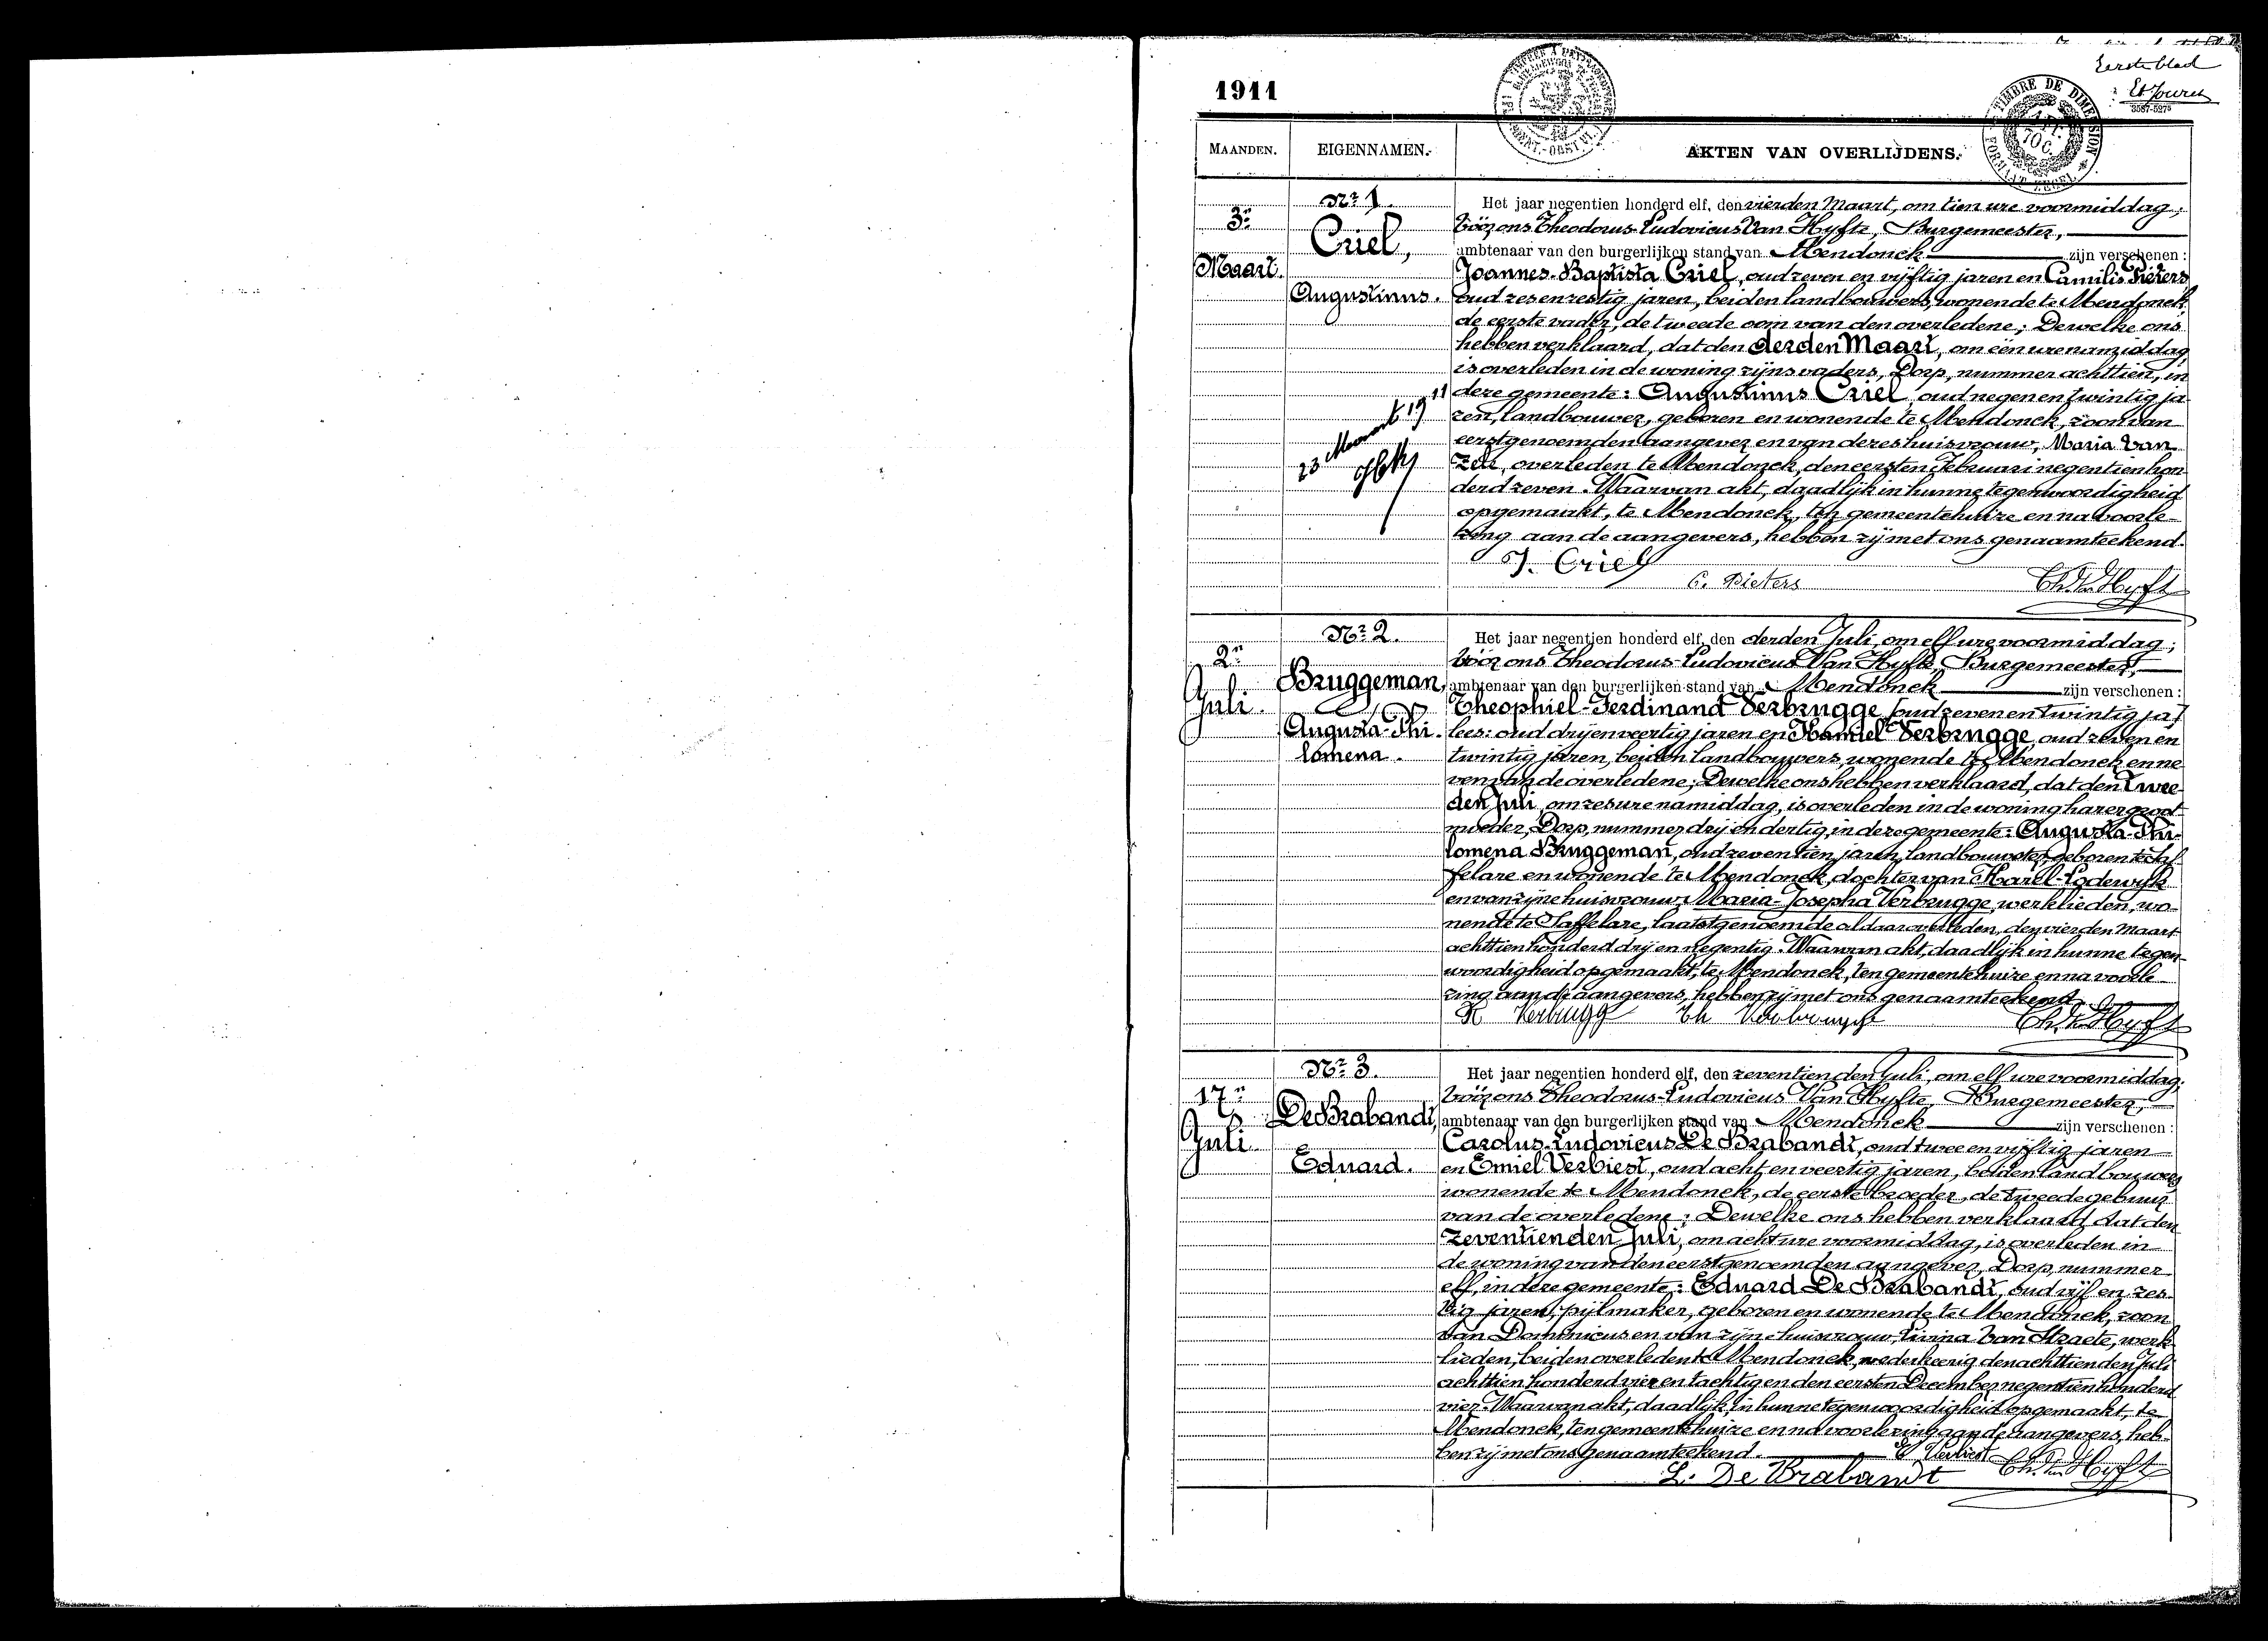 Eerste blad
1911
3587-5275
TIMBRE DE DIMENSION
FORMAAT ZEGEL
70 C.
MAANDEN. EIGENNAMEN. AKTEN VAN OVERLIJDENS.
Nr 1.
3n
Maart.
Criel,
Augustinus.
23 Maart 1911
Het jaar negentien honderd elf, den vierden Maart, om tien ure voormiddag;
vóór ons Theodorus-Ludovicus Van Hyfte, Burgemeester,
ambtenaar van den burgerlijken stand van Mendonck zijn verschenen:
Joannes-Baptista Criel, oud zeven en vijftig jaren en Camilis Pieters
oud zes en zestig jaren, beiden landbouwers, wonende te Mendonck,
de eerste vader, de tweede oom van den overledene; Dewelke ons
hebben verklaard, dat den derden Maart, om één ure namiddag,
is overleden in de woning zijns vaders, Dorp, nummer achttien, in
deze gemeente: Augustinus Criel, oud negen en twintig ja-
ren, landbouwer, geboren en wonende te Mendonck, zoon van
eerstgenoemden aangever en van dezes huisvrouw, Maria Van
Zele, overleden te Mendonck, den eersten Februari negentien hon
derd zeven. Waarvan akt, daadlijk in hunne tegenwoordigheid
opgemaakt, te Mendonck, ten gemeentehuize en na voorle-
zing aan de aangevers, hebben zij met ons genaamteekend.
J. Criel
C. Pieters Th. Van Hyfte
Nr 2.
2n
Juli.
Bruggeman,
Augusta-Phi-
lomena.
Het jaar negentien honderd elf, den derden Juli, om elf ure voormiddag;
vóór ons Theodorus-Ludovicus Van Hyfte, Burgemeester,
ambtenaar van den burgerlijken stand van Mendonck zijn verschenen:
Theophiel-Ferdinand Verbrugge (oud zeven en twintig ja)
lees: oud drij en veertig jaren en Kamiel Verbrugge, oud zeven en
twintig jaren, beiden landbouwers, wonende te Mendonck en ne
ven van de overledene; Dewelke ons hebben verklaard, dat den twee-
den Juli, om zes ure namiddag, is overleden in de woning harer groot-
moeder, Dorp, nummer drij en dertig, in deze gemeente: Augusta-Phi-
lomena Bruggeman, oud zeventien jaren, landbouwster, geboren te Saf-
felare en wonende te Mendonck, dochter van Karel-Lodewyk
en van zijne huisvrouw Maria-Josepha Verbrugge, werklieden, wo-
nende te Saffelare, laatstgenoemde aldaar overleden, den vierden Maart
achttien honderd drij en negentig. Waarvan akt, daadlijk in hunne tegen-
woordigheid opgemaakt, te Mendonck, ten gemeentehuize en na voorle-
zing aan de aangevers, hebben zij met ons genaamteekend.
K Verbrugg Th Verbrugge Th. Van Hyfte
Nr 3.
17n
Juli.
De Brabandt,
Eduard.
Het jaar negentien honderd elf, den zeventienden Juli, om elf ure voormiddag;
vóór ons Theodorus-Ludovicus Van Hyfte, Burgemeester,
ambtenaar van den burgerlijken stand van Mendonck zijn verschenen:
Carolus-Ludovicus De Brabandt, oud twee en vijftig jaren
en Emiel Verbiest, oud acht en veertig jaren, beiden landbouwers
wonende te Mendonck, de eerste broeder, de tweede gebuur
van de overledene; Dewelke ons hebben verklaard dat den
zeventienden Juli, om acht ure voormiddag, is overleden in
de woning van den eerstgenoemden aangever, Dorp, nummer
elf, in deze gemeente: Eduard De Brabandt, oud vijf en zes
tig jaren, pijlmaker, geboren en wonende te Mendonck, zoon
van Dominicus en van zijne huisvrouw, Livina Van Straete, werk-
lieden, beiden overleden te Mendonck, wederkeerig den achttienden Juli
achttien honderd vier en tachtig en den eersten December negentien honderd
vier. Waarvan akt, daadlijk in hunne tegenwoordigheid opgemaakt, te
Mendonck, ten gemeentehuize en na voorlezing aan de aangevers, heb-
ben zij met ons genaamteekend. E Verbiest
L. De Brabandt Th. Van Hyfte